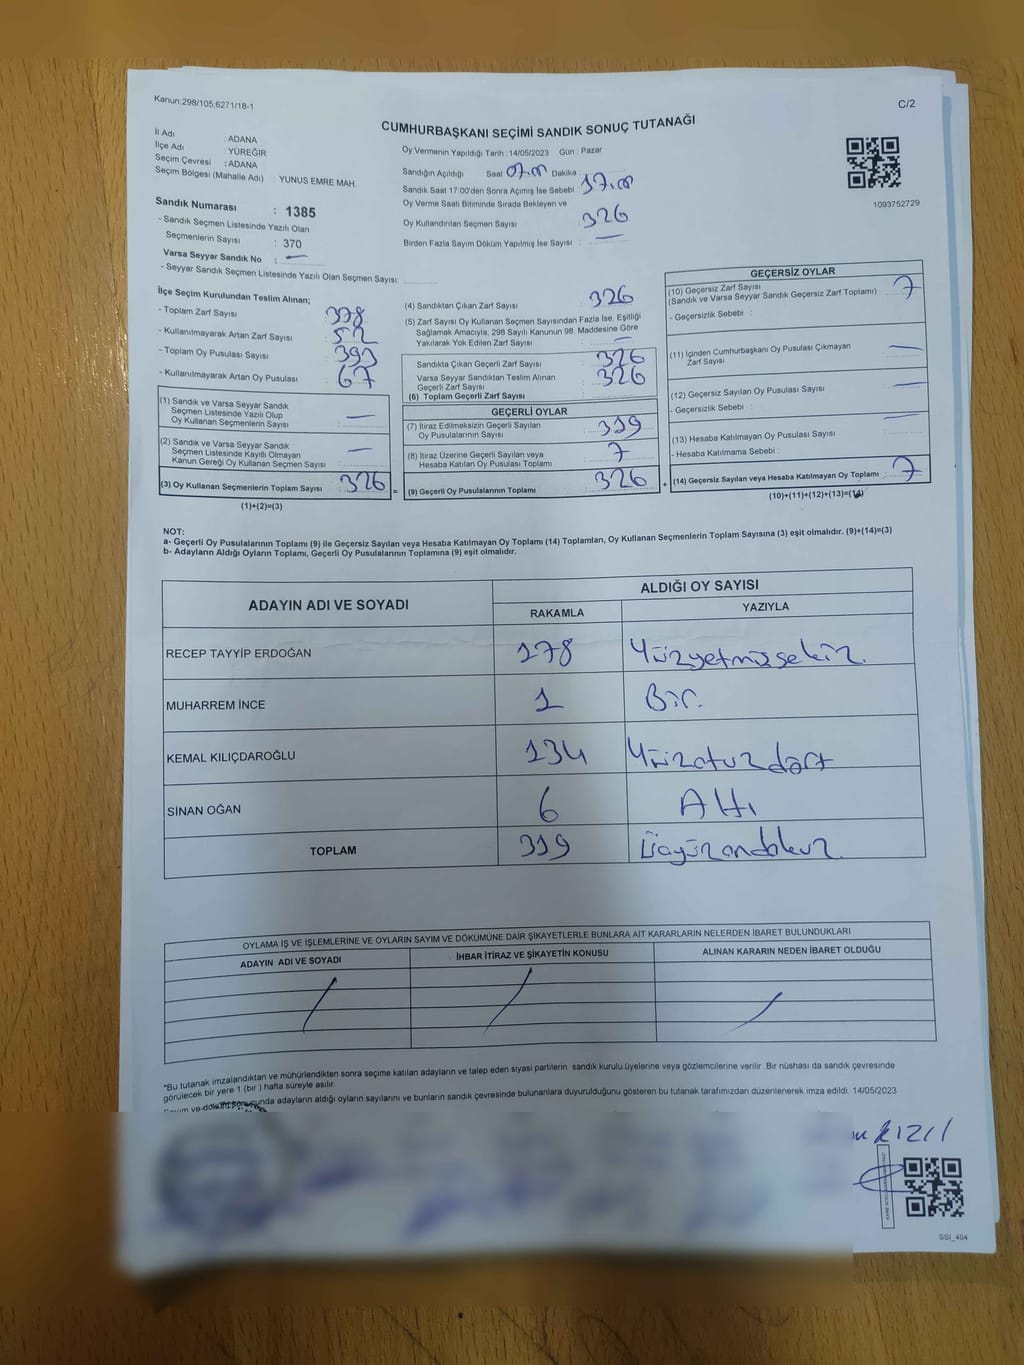 Kanun,298/105;6271/18-1
C/2
CUMHURBAŞKANI SEÇİMİ SANDIK SONUÇ TUTANAĞI
İl Adı : ADANA
İlçe Adı : YÜREĞİR
Seçim Çevresi : ADANA
Seçim Bölgesi (Mahalle Adı) : YUNUS EMRE MAH.
Sandık Numarası : 1385
- Sandık Seçmen Listesinde Yazılı Olan
Seçmenlerin Sayısı : 370
Varsa Seyyar Sandık No : —
- Seyyar Sandık Seçmen Listesinde Yazılı Olan Seçmen Sayısı:
Oy Vermenin Yapıldığı Tarih :14/05/2023 Gün : Pazar
Sandığın Açıldığı Saat 07.00 Dakika :
Sandık Saat 17:00'den Sonra Açımış İse Sebebi : 17.00
Oy Verme Saati Bitiminde Sırada Bekleyen ve
Oy Kullandırılan Seçmen Sayısı : 326
Birden Fazla Sayım Döküm Yapılmış İse Sayısı : —
1093752729
İlçe Seçim Kurulundan Teslim Alınan;
- Toplam Zarf Sayısı : 378
- Kullanılmayarak Artan Zarf Sayısı : 52
- Toplam Oy Pusulası Sayısı : 393
- Kullanılmayarak Artan Oy Pusulası : 67
(1) Sandık ve Varsa Seyyar Sandık
Seçmen Listesinde Yazılı Olup
Oy Kullanan Seçmenlerin Sayısı : —
(2) Sandık ve Varsa Seyyar Sandık
Seçmen Listesinde Kayıtlı Olmayan
Kanun Gereği Oy Kullanan Seçmen Sayısı : —
(3) Oy Kullanan Seçmenlerin Toplam Sayısı : 326
(1)+(2)=(3)
(4) Sandıktan Çıkan Zarf Sayısı : 326
(5) Zarf Sayısı Oy Kullanan Seçmen Sayısından Fazla İse, Eşitliği
Sağlamak Amacıyla; 298 Sayılı Kanunun 98. Maddesine Göre
Yakılarak Yok Edilen Zarf Sayısı : —
Sandıkta Çıkan Geçerli Zarf Sayısı : 326
Varsa Seyyar Sandıktan Teslim Alınan
Geçerli Zarf Sayısı : 326
(6) Toplam Geçerli Zarf Sayısı :
GEÇERLİ OYLAR
(7) İtiraz Edilmeksizin Geçerli Sayılan
Oy Pusulalarının Sayısı : 319
(8) İtiraz Üzerine Geçerli Sayılan veya
Hesaba Katılan Oy Pusulası Toplamı : 7
= (9) Geçerli Oy Pusulalarının Toplamı : 326
GEÇERSİZ OYLAR
(10) Geçersiz Zarf Sayısı
(Sandık ve Varsa Seyyar Sandık Geçersiz Zarf Toplamı) : 7
- Geçersizlik Sebebi :
(11) İçinden Cumhurbaşkanı Oy Pusulası Çıkmayan
Zarf Sayısı : —
(12) Geçersiz Sayılan Oy Pusulası Sayısı : —
- Geçersizlik Sebebi :
(13) Hesaba Katılmayan Oy Pusulası Sayısı : —
- Hesaba Katılmama Sebebi :
+ (14) Geçersiz Sayılan veya Hesaba Katılmayan Oy Toplamı : 7
(10)+(11)+(12)+(13)=(14)
NOT:
a- Geçerli Oy Pusulalarının Toplamı (9) ile Geçersiz Sayılan veya Hesaba Katılmayan Oy Toplamı (14) Toplamları, Oy Kullanan Seçmenlerin Toplam Sayısına (3) eşit olmalıdır. (9)+(14)=(3)
b- Adayların Aldığı Oyların Toplamı, Geçerli Oy Pusulalarının Toplamına (9) eşit olmalıdır.
ADAYIN ADI VE SOYADI ALDIĞI OY SAYISI
RAKAMLA YAZIYLA
RECEP TAYYİP ERDOĞAN 178 Yüzyetmişsekiz.
MUHARREM İNCE 1 Bir.
KEMAL KILIÇDAROĞLU 134 Yüzotuzdört
SİNAN OĞAN 6 Altı
TOPLAM 319 Üçyüzondokuz.
OYLAMA İŞ VE İŞLEMLERİNE VE OYLARIN SAYIM VE DÖKÜMÜNE DAİR ŞİKAYETLERLE BUNLARA AİT KARARLARIN NELERDEN İBARET BULUNDUKLARI
ADAYIN ADI VE SOYADI İHBAR İTİRAZ VE ŞİKAYETİN KONUSU ALINAN KARARIN NEDEN İBARET OLDUĞU
*Bu tutanak imzalandıktan ve mühürlendikten sonra seçime katılan adayların ve talep eden siyasi partilerin sandık kurulu üyelerine veya gözlemcilerine verilir. Bir nüshası da sandık çevresinde
görülecek bir yere 1 (bir ) hafta süreyle asılır.
Sayım ve döküm sonucunda adayların aldığı oyların sayılarını ve bunların sandık çevresinde bulunanlara duyurulduğunu gösteren bu tutanak tarafımızdan düzenlenerek imza edildi. 14/05/2023
SSI_404